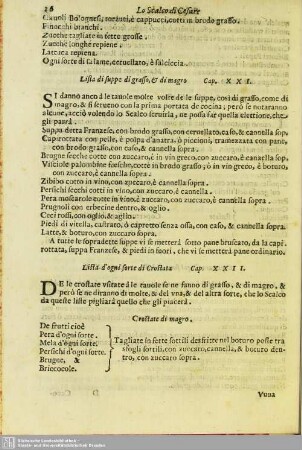 26 Lo Scalco di Cesare
Cauoli Bolognesi, torzuti, & cappucci, cotti in brodo grasso.
Finocchi bianchi.
Zucche tagliate in fette grosse.
Zucche longhe repiene.
Lattuca repiena.
Ogni sorte di salame, ceruellato, & salciccia.
Lista di suppe di grasso, & di magro Cap. X X I.
SI danno anco à le tauole molte volte de le suppe, così di grasso, come di
magro, & si serueno con la prima portata de cocina; però se notaranno
alcune, acciò volendo lo Scalco seruirsi, ne possa far quella elettione, che
gli parrà.
Suppa detta Franzese, con brodo grasso, con ceruellato, caso, & cannella sop.
Caprottata con pelle, & polpa d'anatra, ò piccioni, tramezzata con pane,
con brodo grasso, con caso, & cannella sopra.
Brugne secche cotte con zuccaro, & in vino greco, con zuccaro, & canella sop.
Visciole palombine fresche, cotte in brodo grasso; ò in vin greco, & boturo
con zuccaro, & cannella sopra.
Zibibo cotto in vino, con zuccaro & cannella sopra.
Persichi secchi cotti in vino, con zuccaro, & cannella.
Pera moscarole cotte in vino, & zuccaro, con zuccaro, & cannella sopra.
Prugnoli con erbicine dentro, & oglio.
Ceci rossi, con oglio, & aglio.
Piedi di vitella, castrato, ò capretto senza ossa, con caso, & cannella sopra.
Latte, & boturo, con zuccaro sopra.
A tutte le sopradette suppe vi se metterà sotto pane bruscato, da la capi-
rottata, suppa Franzese, & piedi in fuori, che vi se metterà pane ordinario.
Lista d'ogni sorte di Crostata Cap. X X I I.
DE le crostate vsitate à le tauole se ne fanno di grasso, & di magro, &
però se ne diranno di molte, & del vna, & del altra sorte, che lo Scalco
da queste liste pigliarà quello che gli piacerà.
Crostate di magro.
De frutti cioè
Pera d'ogni sorte.
Mela d'ogni sorte.
Persichi d'ogni sorte.
Brugne, &
Briccocole.
Tagliate in fette sottili desfritte nel boturo posse tra
sfogli sottili, con zuccaro, cannella, & boturo den-
tro, con zuccaro sopra.
Vuua